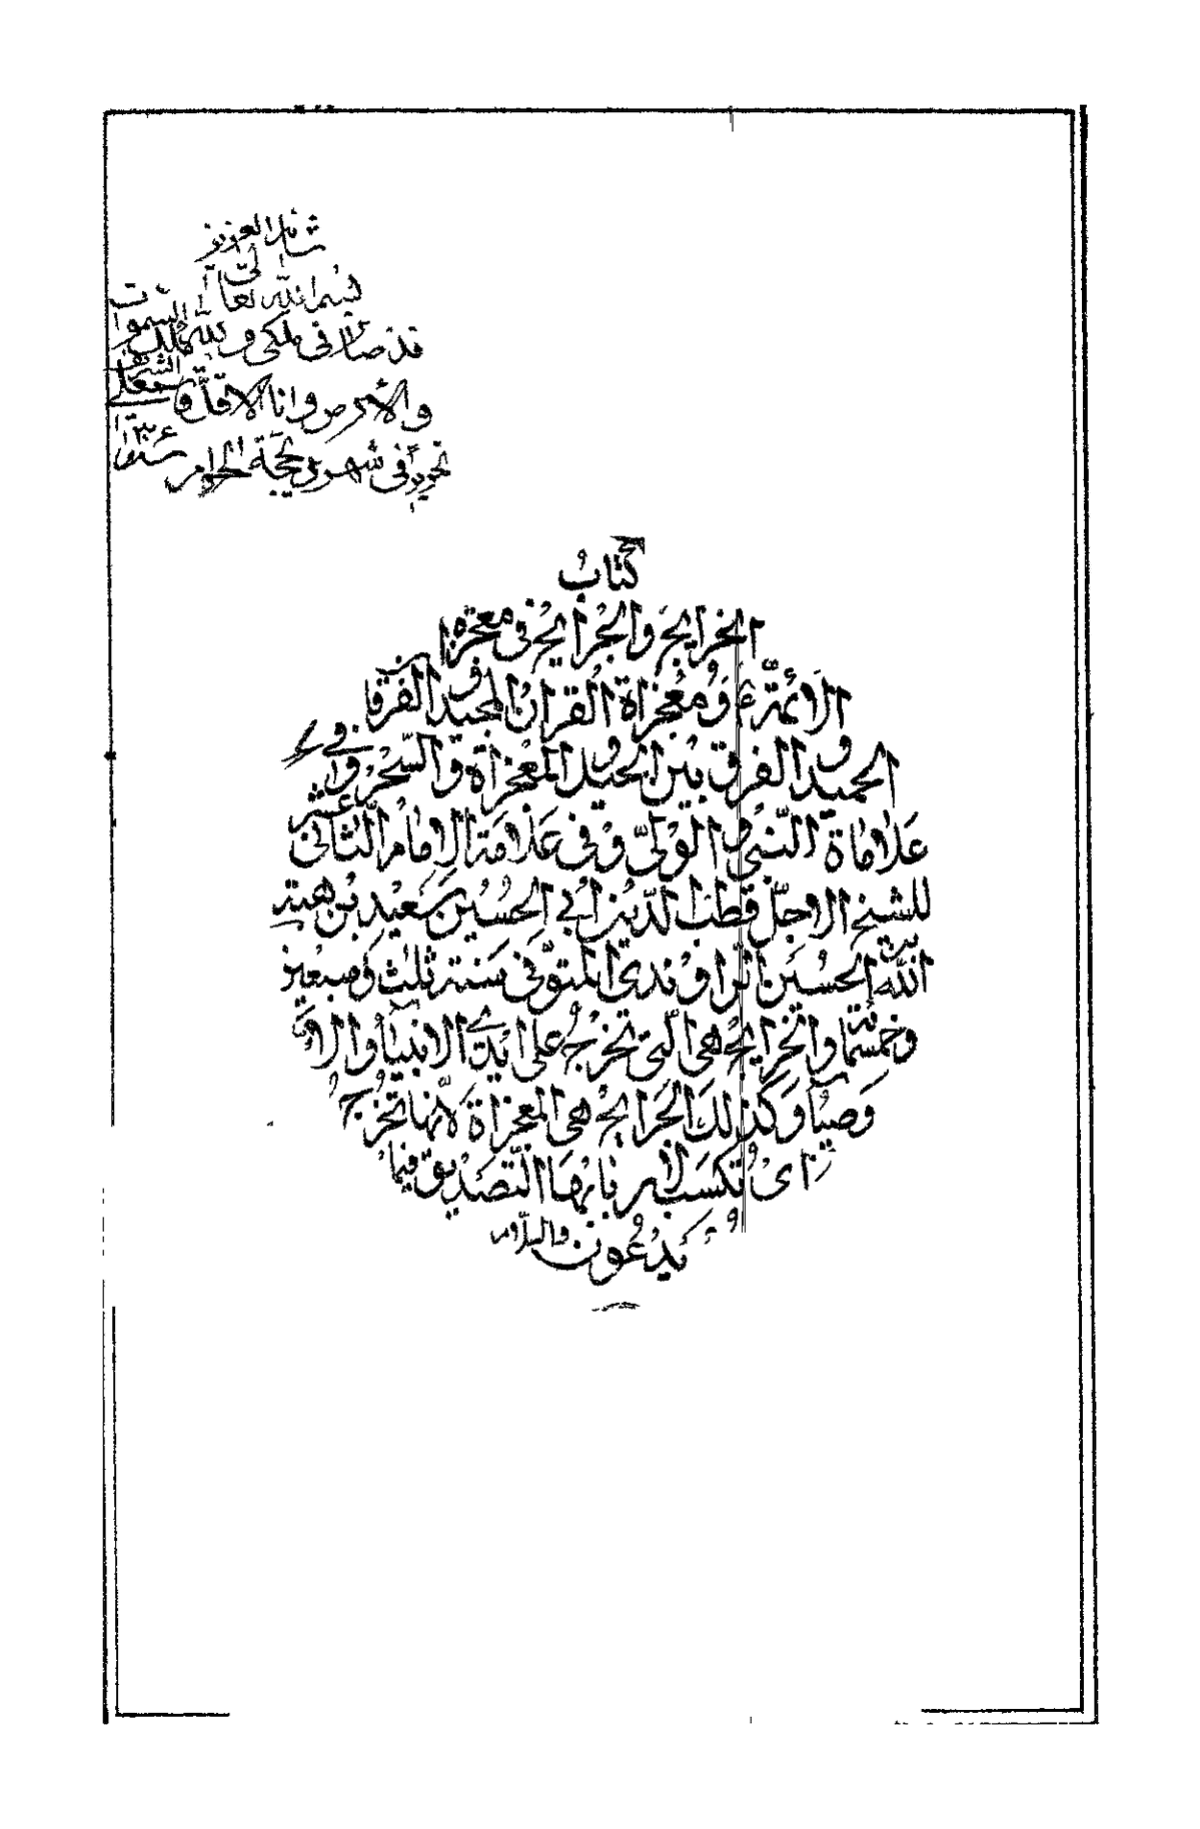 شأنه العزيز
بسم الله تعالى
قد صار في ملكي و لله ملك السموات
والأرض وانا الاقل
تحريراً في شهر ذيحجة الحرام سنة
كتاب
الخرايج والجرايح في معجزة
الائمّة ع ومعجزاة القران المجيد و الفرقان
الحميد و الفرق بين الحيد و المعجزاة و السّحر و في
علاماة النّبي و الولىّ و في علامة الإمام الثّاني عشر
للشيخ الاجلّ قطب الدّين ابي الحسين سعيد بن هبة
الله الحسين الراوندي المتوفى سنة ثلث و سبعين
وخمسمائة و الخرايج هي الّتي تخرج على ايدي الانبيآء و الا
وصيآء و كذلك الجرايح هي المعجزاة لأنها تخرج
اي تكسب لاربابها التّصديق فيما
يدعون والسلام